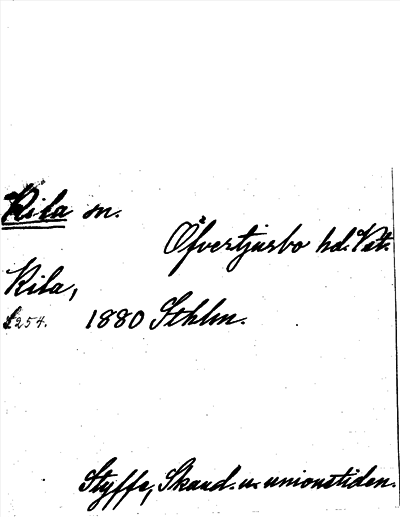 Kila sn.
Öfvertjurbo hd. Vstr.
Kila,
£254. 1880 Sthlm.
Styffe, Skand. u. unionstiden.